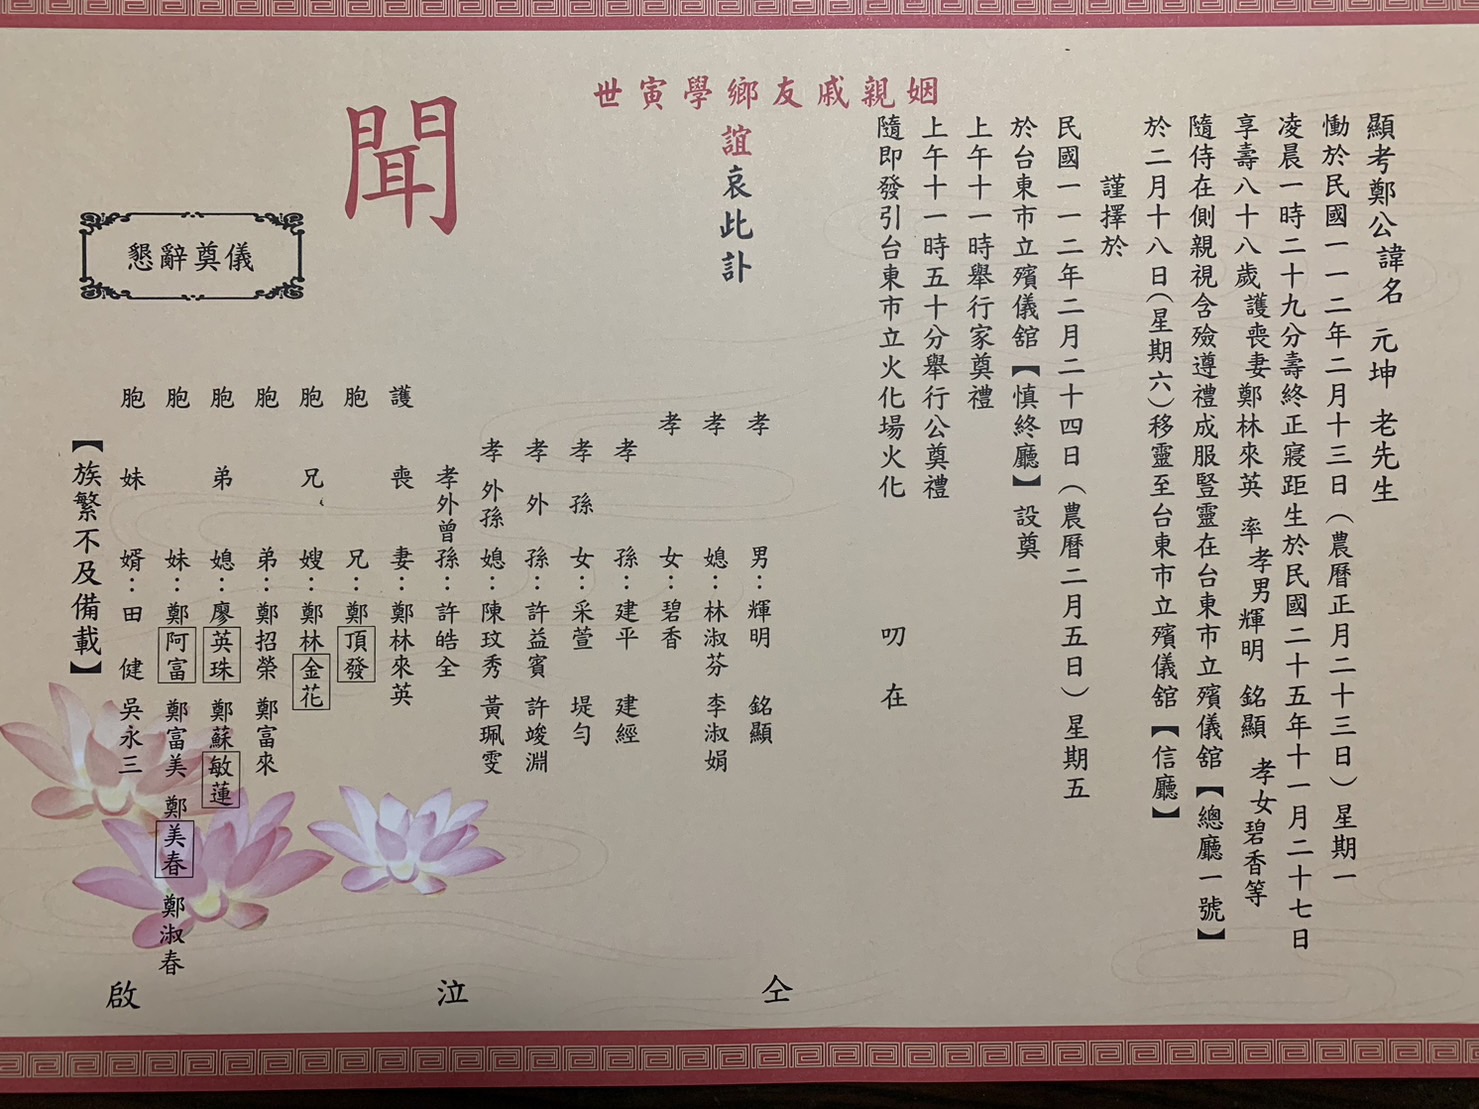 顯考鄭公諱名 元坤 老先生
慟於民國一一二年二月十三日(農曆正月二十三日)星期一
凌晨一時二十九分壽終正寢距生於民國二十五年十一月二十七日
享壽八十八歲 護喪妻鄭林來英 率孝男輝明 銘顯 孝女碧香等
隨侍在側親視含殮遵禮成服豎靈在台東市立殯儀舘【總廳一號】
於二月十八日(星期六)移靈至台東市立殯儀舘【信廳】
謹擇於
民國一一二年二月二十四日(農曆二月五日)星期五
於台東市立殯儀舘【慎終廳】設奠
上午十一時舉行家奠禮
上午十一時五十分舉行公奠禮
隨即發引台東市立火化場火化
叨在
世寅學鄉友戚親姻
誼哀此訃
聞
懇辭奠儀
孝男:輝明 銘顯
孝媳:林淑芬 李淑娟
孝女:碧香
孝孫:建平 建經
孝孫女:采萱 堤勻
孝外孫:許益賓 許竣淵
孝外孫媳:陳玟秀 黃珮雯
孝外曾孫:許皓全
護喪妻:鄭林來英
胞兄:鄭頂發
胞兄嫂:鄭林金花
胞弟:鄭招榮 鄭富來
胞弟媳:廖英珠 鄭蘇敏蓮
胞妹:鄭阿富 鄭富美 鄭美春 鄭淑春
胞妹婿:田健 吳永三
【族繁不及備載】
仝 泣 啟